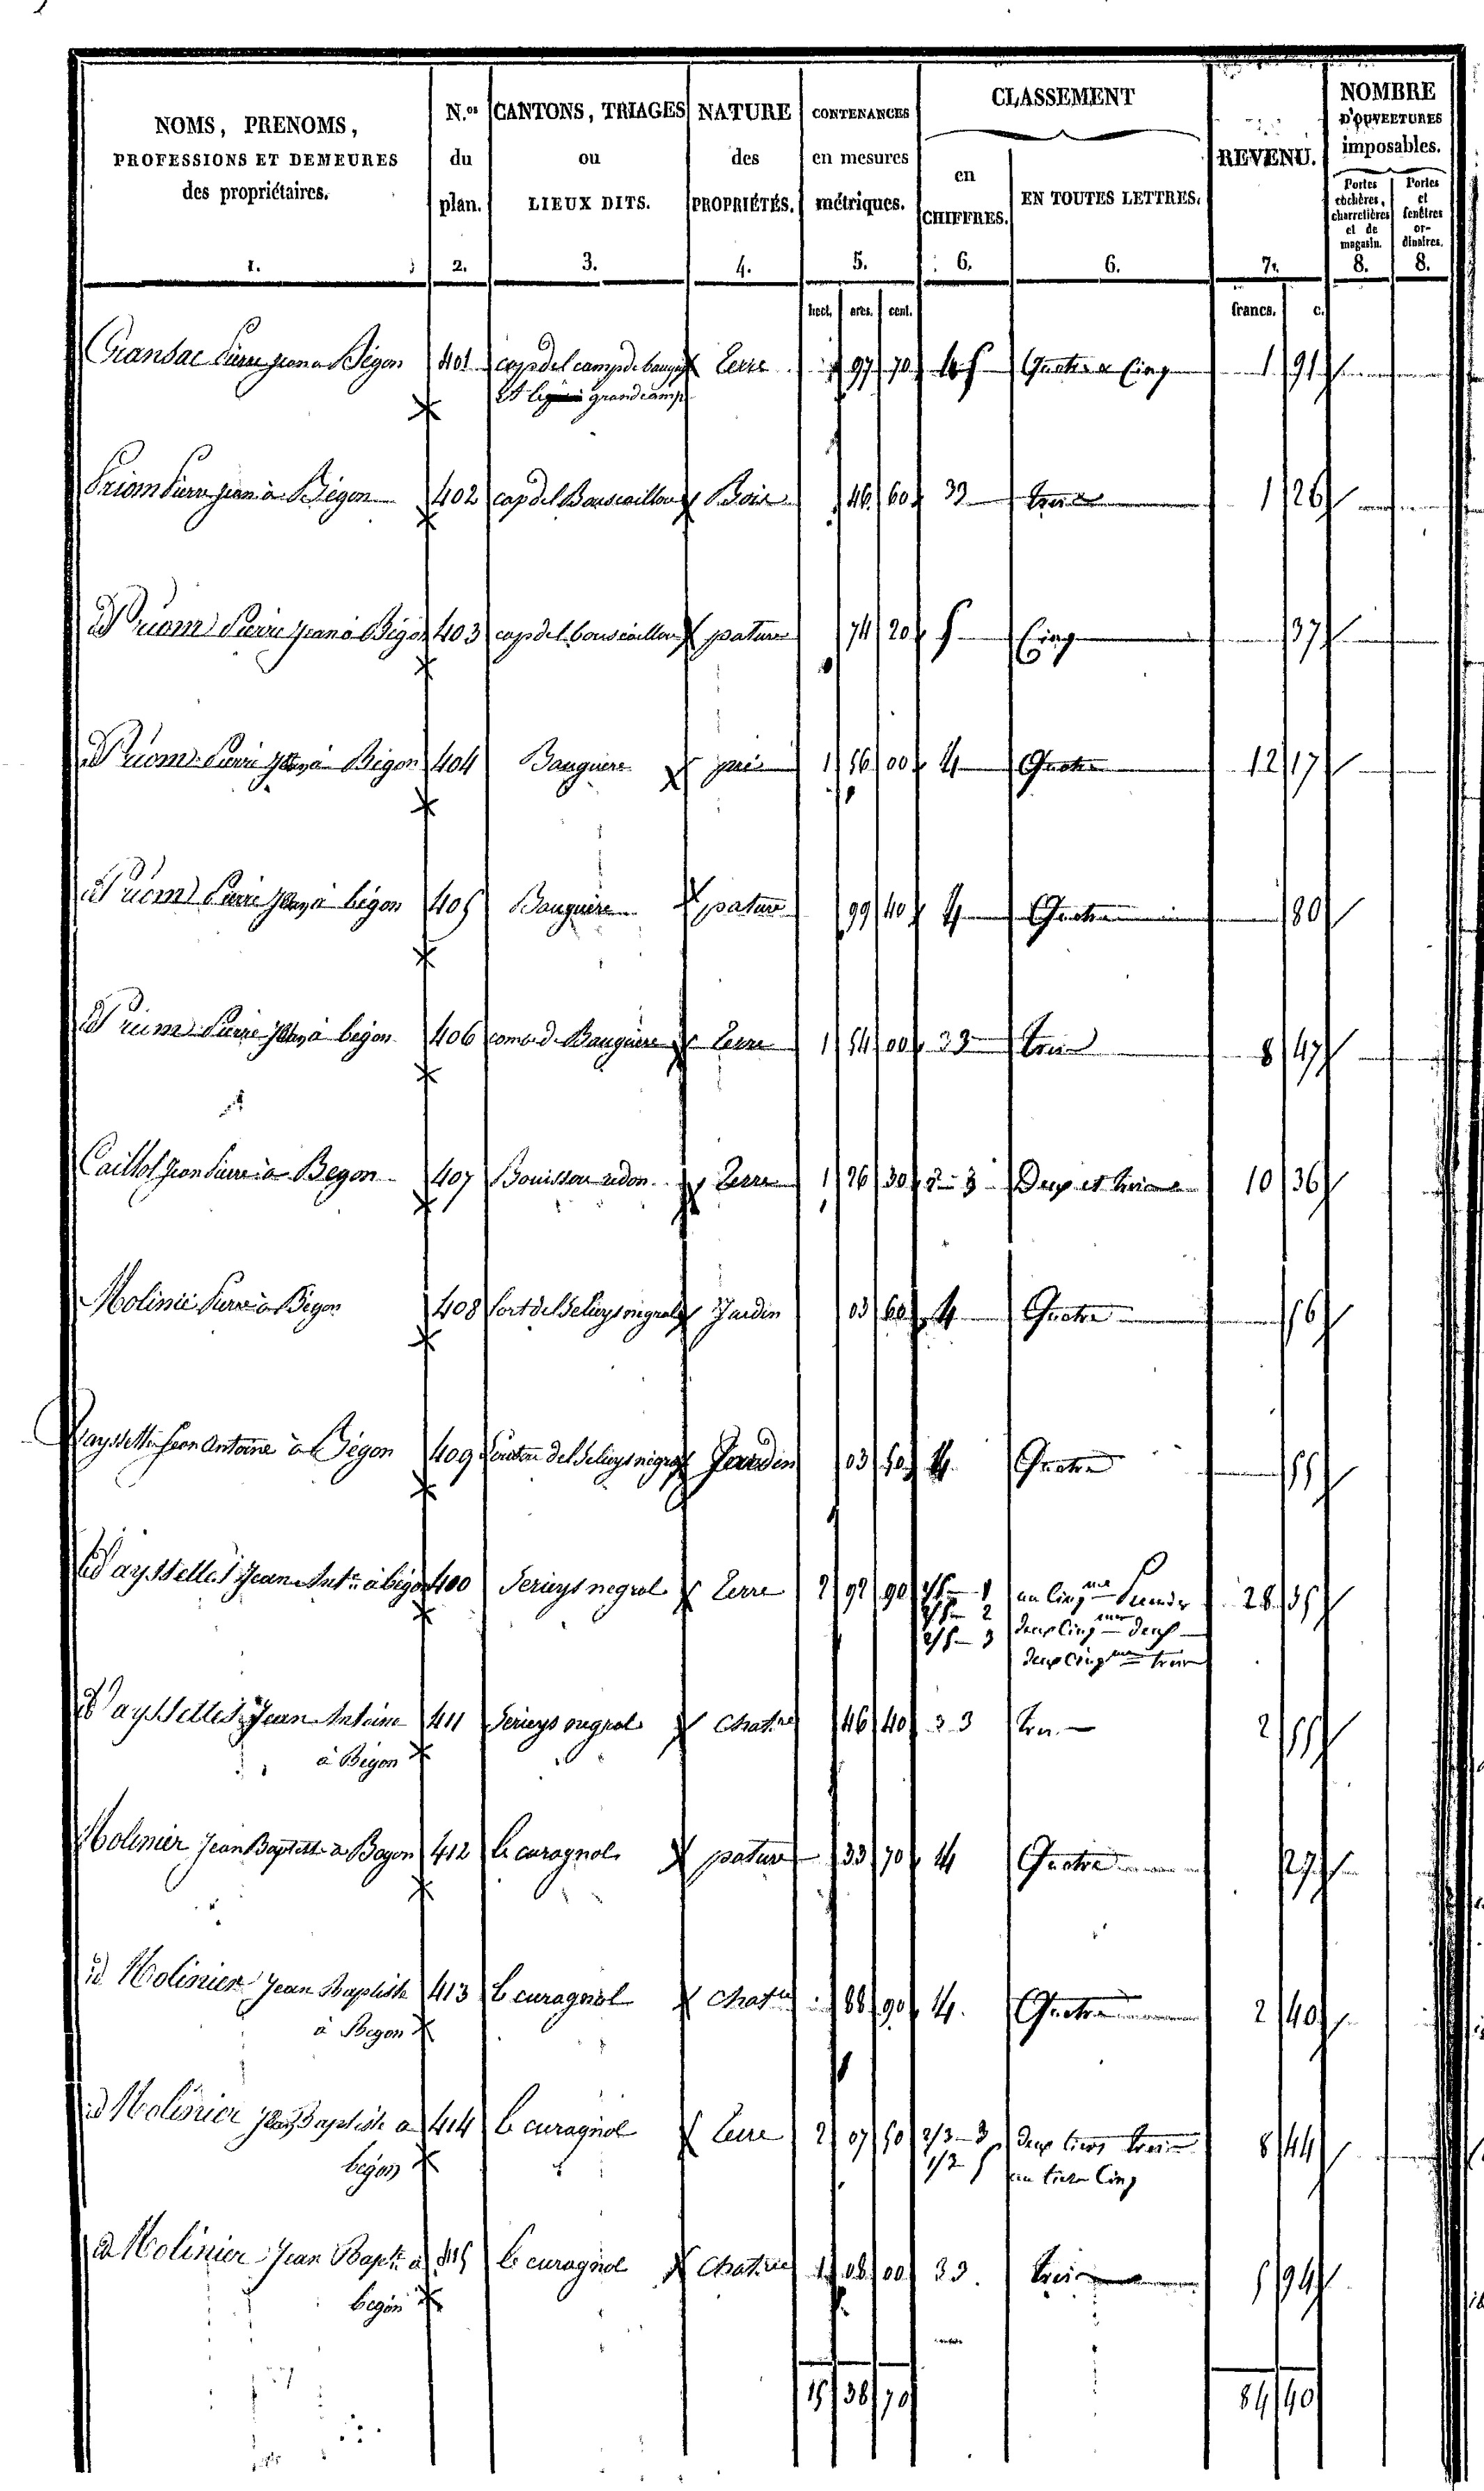 NOMS, PRENOMS, PROFESSIONS ET DEMEURES des propriétaires. 1.
N.os du plan. 2.
CANTONS, TRIAGES ou LIEUX DITS. 3.
NATURE des PROPRIÉTÉS. 4.
CONTENANCES en mesures métriques. 5.
CLASSEMENT
en CHIFFRES. 6.
EN TOUTES LETTRES. 6.
REVENU. 7.
NOMBRE D'OUVERTURES imposables.
Portes cochères, charretières et de magasin. 8.
Portes et fenêtres ordinaires. 8.
hect. ares. cent. francs. c.
Cransac Pierre Jean a Bégon 401 cap del camp de Terre 97 70 4 5 Quatre & Cinq 1 91
grand camp
Priom Pierre Jean à Bégon 402 cap del Bouscaillou Bois 46 60 3 trois 1 26
id Priom Pierre Jean à Bégon 403 cap del bouscaillou pature 74 20 5 Cinq 37
id Priom Pierre Jean à Bégon 404 Bauguiere pré 1 56 00 4 Quatre 12 17
id Priom Pierre Jean à bégon 405 Bauguiere pature 99 40 4 Quatre 80
id Priom Pierre Jean à bégon 406 Bauguiere Terre 1 54 00 3 trois 8 47
Caillol Jean Pierre à Begon 407 Bouissou redon Terre 1 26 30 2 - 3 Deux et trois 10 36
Molinié Pierre à Bégon 408 Jardin 03 60 4 Quatre 56
Vayssettes Jean Antoine à Bégon 409 Jardin 03 50 4 Quatre 55
id Vayssettes Jean Ant.ne à bégon 400 Serieys negral Terre 2 92 90 1/5 - 1 un Cinq.me Premier 28 35
2/5 - 2 deux Cinq.mes deux
2/5 - 3 deux Cinq.mes trois
id Vayssettes Jean Antoine 411 Serieys negral Chat.ne 46 40 3 trois 2 55
à Bégon
Molinier Jean Baptiste à Begon 412 le curagnol pature 33 70 4 Quatre 27
id Molinier Jean Baptiste 413 le curagnol Chat.ne 88 90 4 Quatre 2 40
à Begon
id Molinier Jean Baptiste a 414 le curagnol Terre 2 07 50 2/3 - 3 deux tiers trois 8 44
bégon 1/3 5 un tiers Cinq
id Molinier Jean Bapt.e a 415 le curagnol Chat.ne 1 08 00 3 trois 5 94
begon
15 38 70 84 40